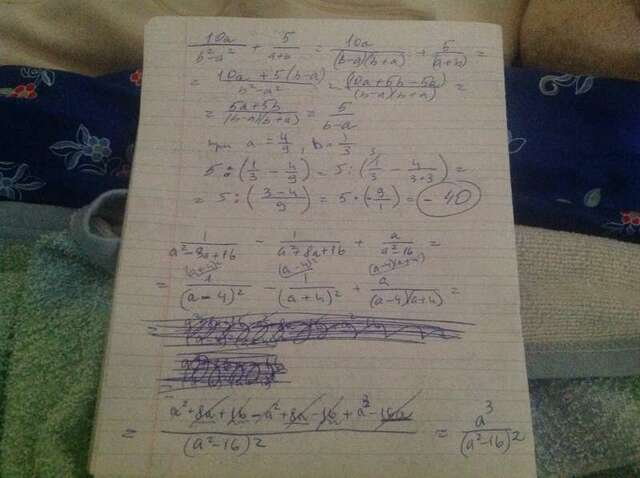 10a/(b²-a²) + 5/(a+b) = 10a/((b-a)(b+a)) + 5/(a+b) =
= (10a+5(b-a))/(b²-a²) = (10a+5b-5a)/((b-a)(b+a)) =
= (5a+5b)/((b-a)(b+a)) = 5/(b-a)
при a = 4/9, b = 1/3
5 : (1/3 - 4/9) = 5 : (1/3 - 4/(3·3)) =
= 5 : ((3-4)/9) = 5 · (-9/1) = -40
1/(a²-8a+16) - 1/(a²+8a+16) + a/(a²-16) =
(a+4)² (a-4)² (a-4)(a+4)
= 1/(a-4)² - 1/(a+4)² + a/((a-4)(a+4)) =
= (a²+8a+16-a²+8a-16+a³-16a)/(a²-16)² = a³/(a²-16)²